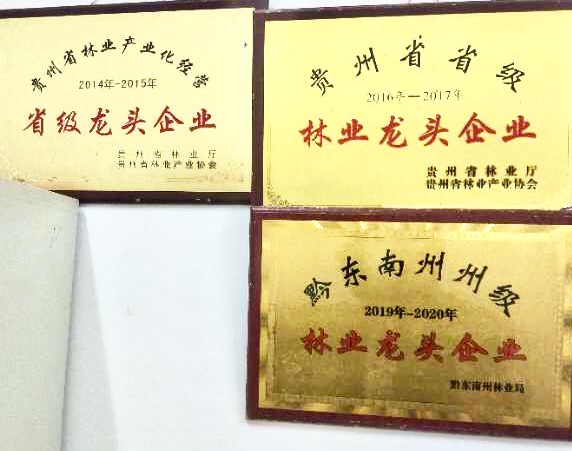 贵州省林业产业化经营
2014年-2015年
省级龙头企业
贵州省林业厅
贵州省林业产业协会
贵州省省级
2016年—2017年
林业龙头企业
贵州省林业厅
贵州省林业产业协会
黔东南州州级
2019年-2020年
林业龙头企业
黔东南州林业局